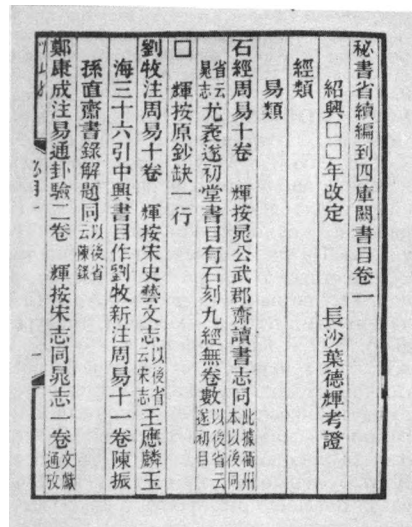 秘書省續編到四庫闕書目卷一
紹興□□年改定　長沙葉德輝考證
經類
易類
石經周易十卷　輝按晁公武郡齋讀書志同此據衢州本以後同
省云晁志尤袤遂初堂書目有石刻九經無卷數以後省云遂初目
□　輝按原鈔缺一行
劉牧注周易十卷　輝按宋史藝文志以後省云宋志王應麟玉
海三十六引中興書目作劉牧新注周易十一卷陳振
孫直齋書錄解題同以後省云陳錄
鄭康成注易通卦驗二卷　輝按宋志同晁志一卷文獻通攷